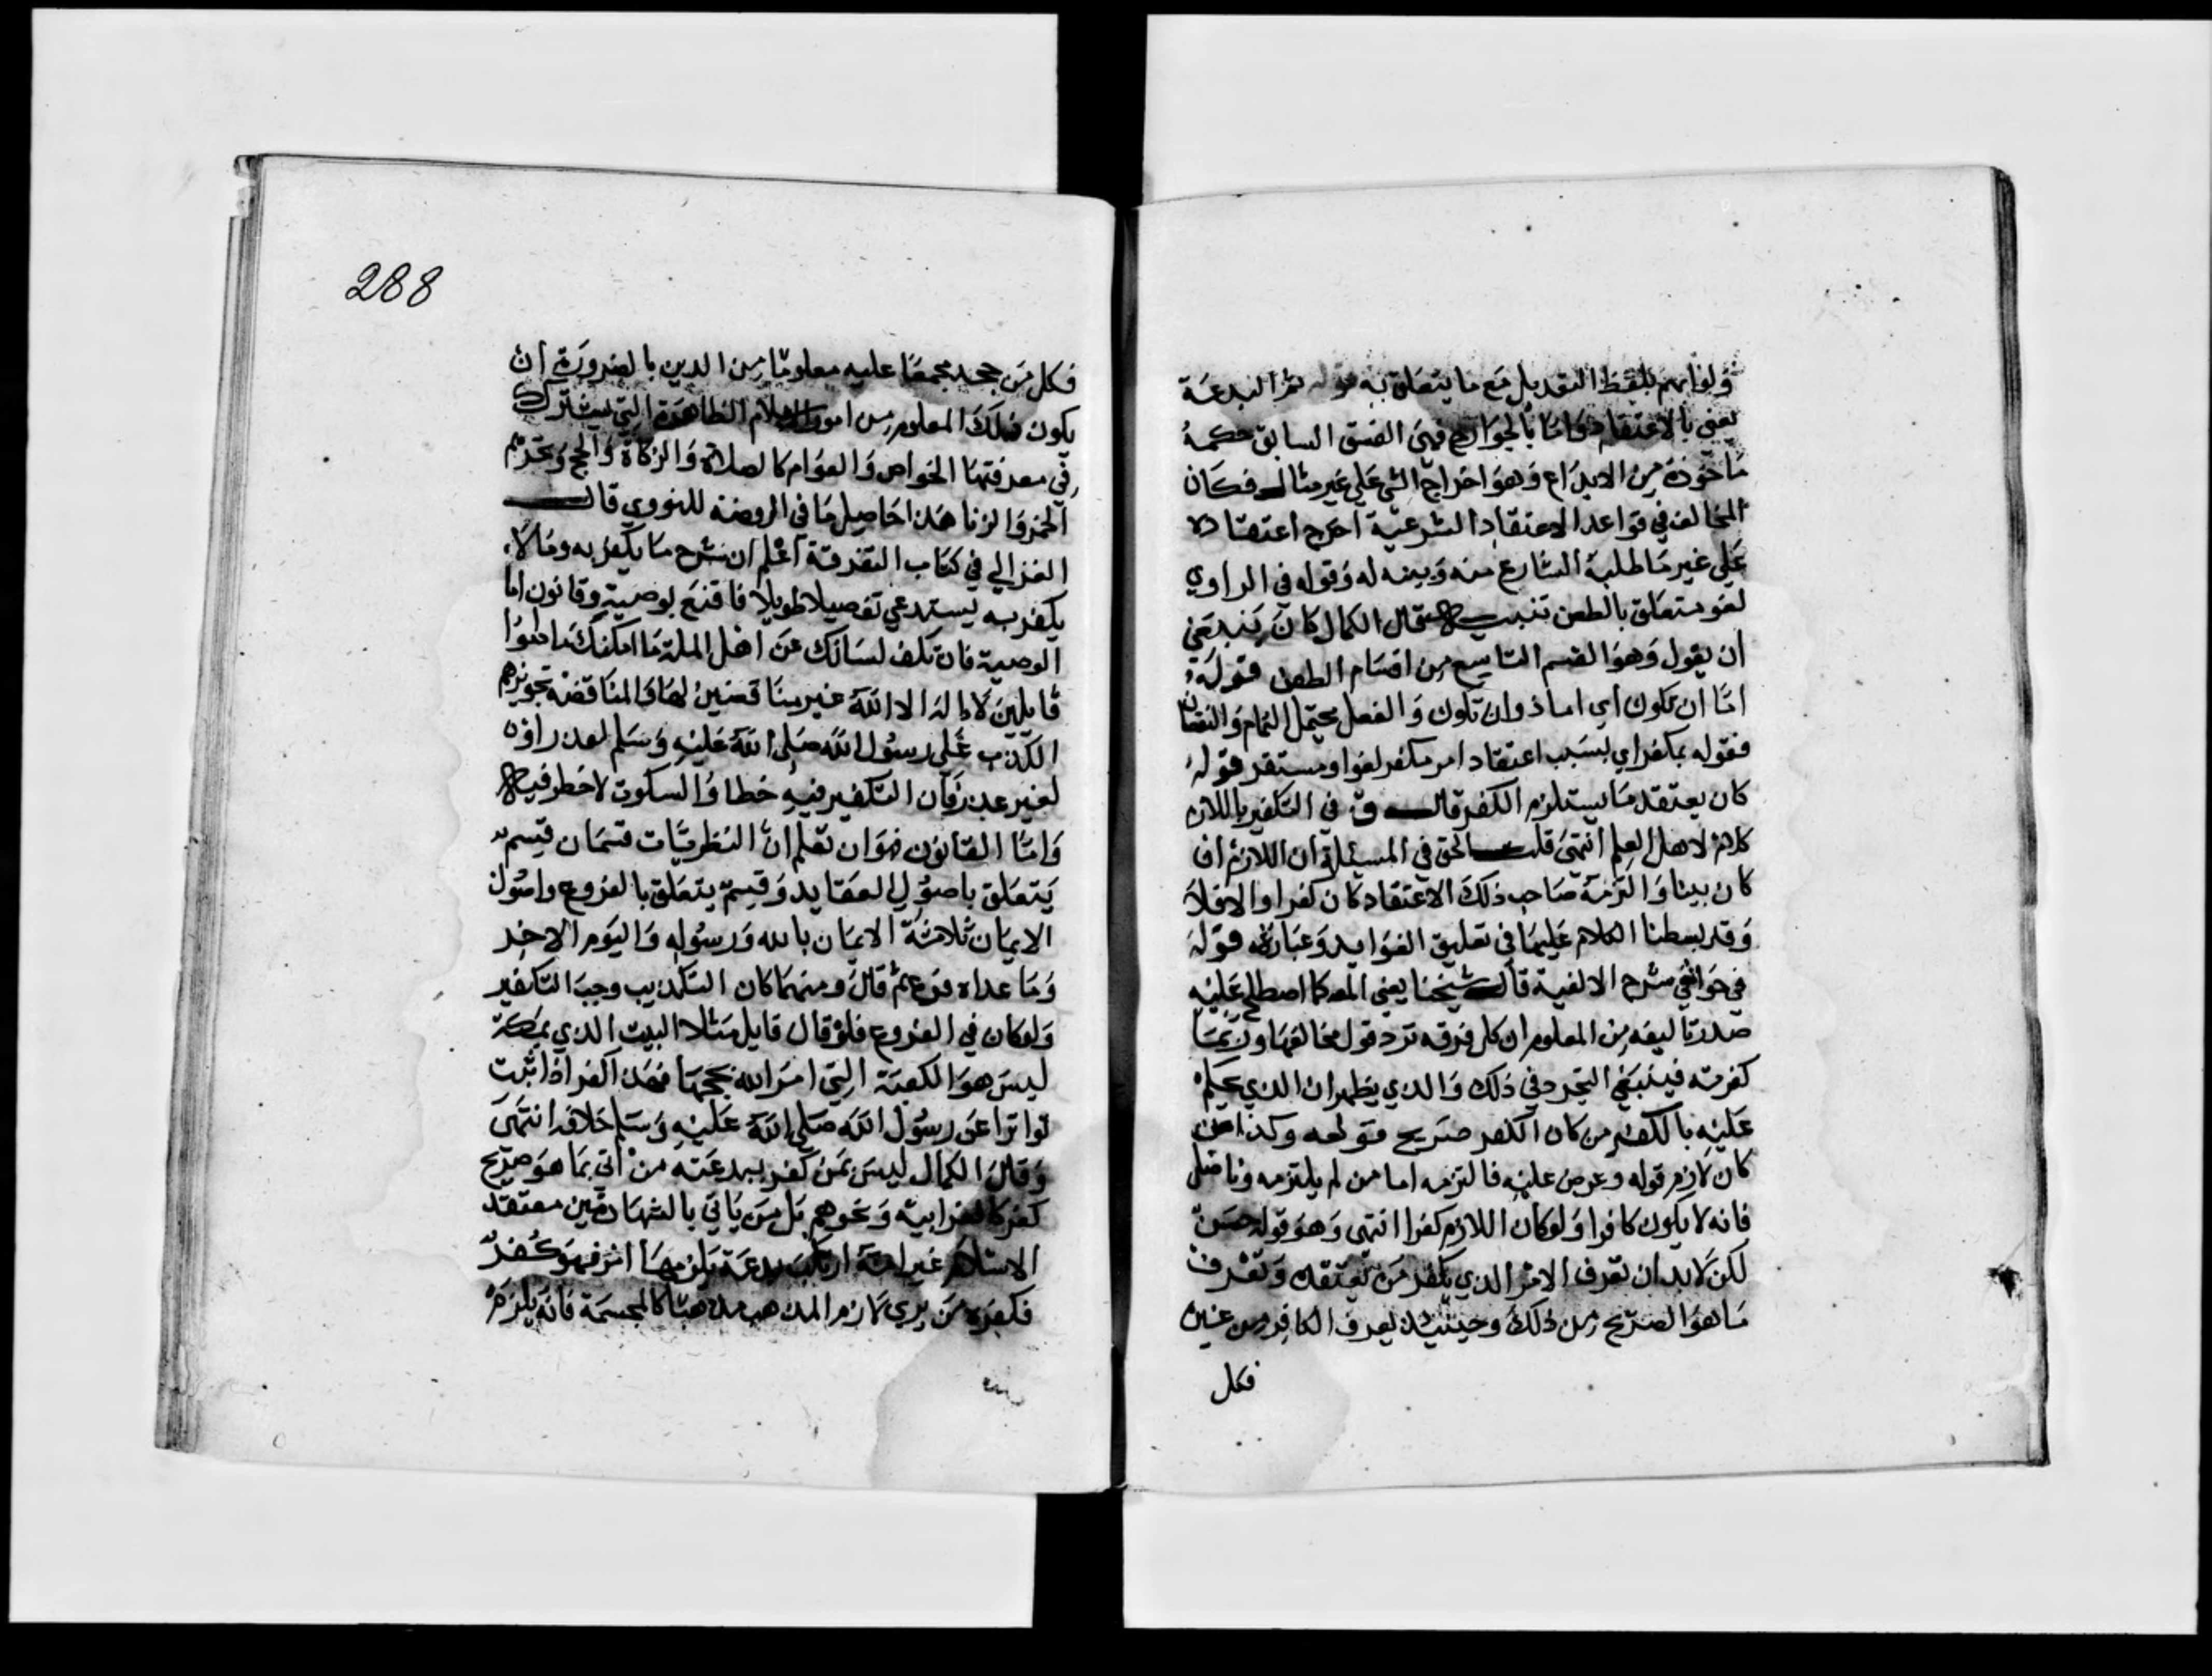 ولو ابهم بلفظ التعديل مع ما يتعلق به قوله ثم البدعة
يعني بالاعتقاد واما بالجوارح فهي الفسق السابق حكمه
ماخوذة من الابداع وهو اخراج الشي على غير مثال فكان
المخالف في قواعد الاعتقاد الشرعية اخرج اعتقاده
على غير ما طلبه الشارع منه وبينه له وقوله في الراوي
لغو متعلق بالطعن تنبيه قال الكمال كان ينبغي
ان يقول وهو القسم التاسع من اقسام الطعن قوله
اما ان تكون اي اما ذو ان تكون والفعل محتمل التمام والنقصان
فقوله بمكفر اي بسبب اعتقاد امر مكفر لغو او مستقر قوله
كان يعتقد ما يستلزم الكفر قال ق في التكفير باللازم
كلام لاهل العلم انتهى قلت الحق في المسئلة ان اللازم ان
كان بينا والتزمه صاحب ذلك الاعتقاد كان كفرا والا فلا
وقد بسطنا الكلام عليها في تعليق الفوايد وعبارته قوله
في حواشي شرح الالفية قال شيخنا يعني المص كما اصطلح عليه
صدر تاليفه من المعلوم ان كل فرقه ترد قول مخالفها وربما
كفرته فينبغي التحرد في ذلك والذي يظهر ان الذي يحكم
عليه بالكفر من كان الكفر صريح قوله وكذا من
كان لازم قوله وعرض عليه فالتزمه اما من لم يلتزمه وناضل
فانه لا يكون كافرا ولو كان اللازم كفرا انتهى وهو قول حسن
لكن لا بد ان تعرف الامر الذي يكفر من يعتقده وتعرف
ما هو الصريح من ذلك وحينئذ يعرف الكافر من غيره
فكل
288
فكل من جحد مجمعا عليه معلوما من الدين بالضرورة ان
يكون ذلك المعلوم من امور الاسلام الظاهرة التي يشترك
في معرفتها الخواص والعوام كالصلاة والزكاة والحج وتحريم
الخمر والزنا هذا حاصل ما في الروضة للنووي قال
الغزالي في كتاب التفرقة اعلم ان شرح ما يكفر به وما لا
يكفر به يستدعي تفصيلا طويلا فاقنع بوصية وقانون اما
الوصية فان تكف لسانك عن اهل الملة ما امكنك ماداموا
قايلين لا اله الا الله غير مناقضين لها والمناقضة تجويزهم
الكذب على رسول الله صلى الله عليه وسلم لعذر اوه
لغير عذر فان التكفير فيه خطا والسكوت لا خطر فيه
واما القانون فهو ان تعلم ان النظريات قسمان قسم
يتعلق باصول العقايد وقسم يتعلق بالفروع واصول
الايمان ثلاثة الايمان بالله ورسوله واليوم الاخر
وما عداه فرع ثم قال ومهما كان التكذيب وجب التكفير
ولو كان في الفروع فلو قال قايل مثلا البيت الذي بمكة
ليس هو الكعبة التي امر الله بحجها فهذا كفر اذا ثبت
تواترا عن رسول الله صلى الله عليه وسلم خلافه انتهى
وقال الكمال ليس من كفر ببدعته من اتى بما هو صريح
كفر كالغرابية ونحوهم بل من ياتي بالشهادتين معتقد
الاسلام غير انه ارتكب بدعة يلزمها امر فهو كفر
فكفره من يرى لازم المذهب مذهبا كالمجسمة فانه يلزم